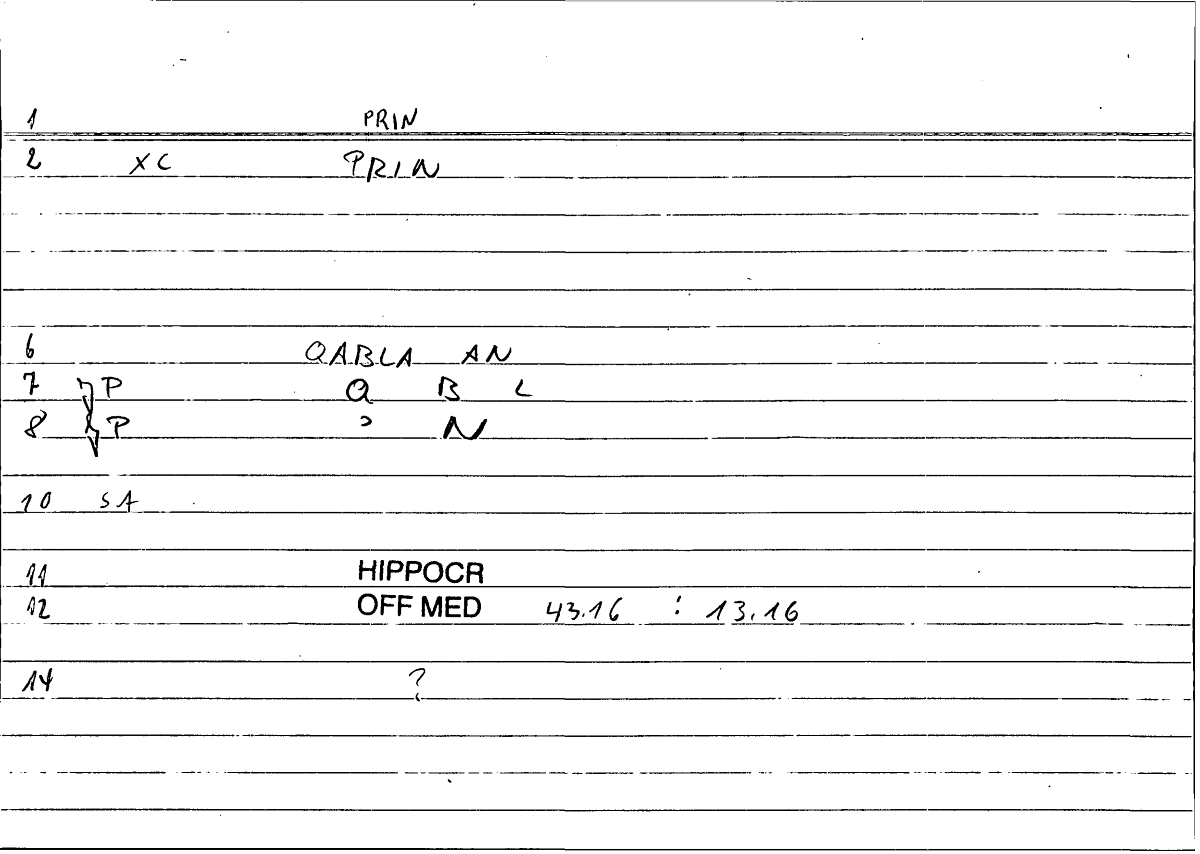 1 PRIN
2 XC PRIN
6 QABLA AN
7 P Q B L
8 P ʾ N
10 SA
11 HIPPOCR
12 OFF MED 43.16 : 13.16
14 ?